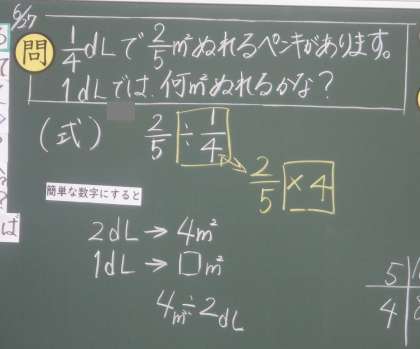 6/27
問
1/4 dLで 2/5 m²ぬれるペンキがあります。
1dLでは、何m²ぬれるかな?
(式) 2/5 ÷ 1/4
2/5 × 4
簡単な数字にすると
2dL → 4m²
1dL → □m²
4m² ÷ 2dL
は
5
4